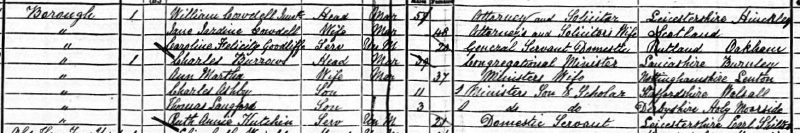 Borough 1 William Cowdell Head Mar 54 Attorney and Solicitor Leicestershire Hinckley
" Jane Jardine Cowdell Wife Mar 48 Attorney's and Solicitors Wife Scotland
" Caroline Felicity Goodliffe Serv Un M General Servant Domestic Rutland Oakham
" 1 Charles Burrows Head Mar 39 Congregational Minister Lancashire Burnley
" Ann Martha Wife Mar 37 Ministers Wife Nottinghamshire Lenton
" Charles Ashby Son 11 Ministers Son & Scholar Staffordshire Walsall
" Thomas Langford Son 3 do do Derbyshire Moorside
" Ruth Annie Hutchin Serv Un M Domestic Servant Leicestershire Earl